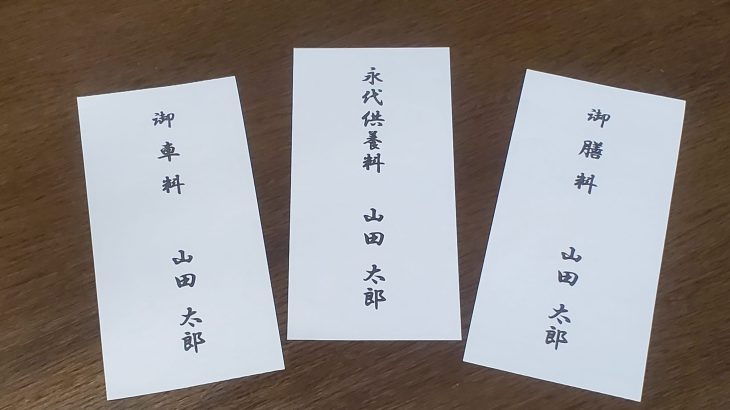 御車料 山田 太郎
永代供養料 山田 太郎
御膳料 山田 太郎